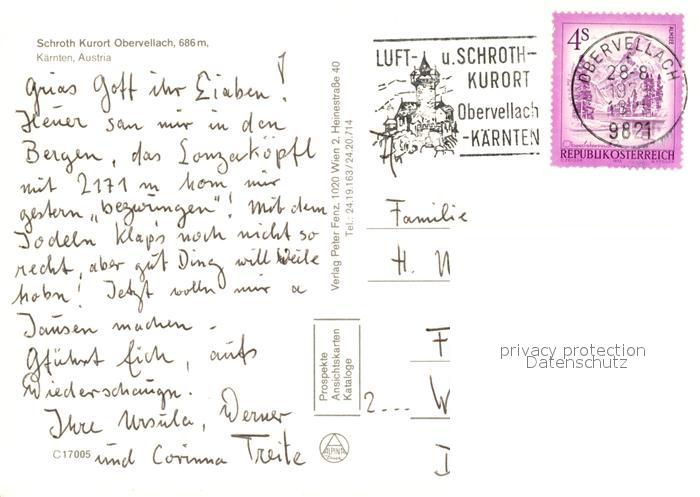 Schroth Kurort Obervellach, 686 m,
Kärnten, Austria
Grias Gott ihr Liaben!
Heuer san mir in den
Bergen, das Lonzaköpfl
mit 2171 m hom mir
gestern „bezwungen"! Mit dem
Jodeln klaps noch nicht so
recht, aber gut Ding will Weile
hobn! Jetzt wolln mir a
Jausen machen -
Gführt Eich, aufs
Wiederschaugn.
Ihre Ursula, Werner
und Corinna Treite
C17005
Verlag Peter Fenz, 1020 Wien 2, Heinestraße 40
Tel.: 24.19.163/24.20.714
Prospekte
Ansichtskarten
Kataloge
ALPINA
LUFT- u. SCHROTH-
KURORT
Obervellach
-KÄRNTEN
4S
OBERVELLACH
28-8.
9821
REPUBLIK ÖSTERREICH
Familie
H.
F
2...
W
privacy protection
Datenschutz